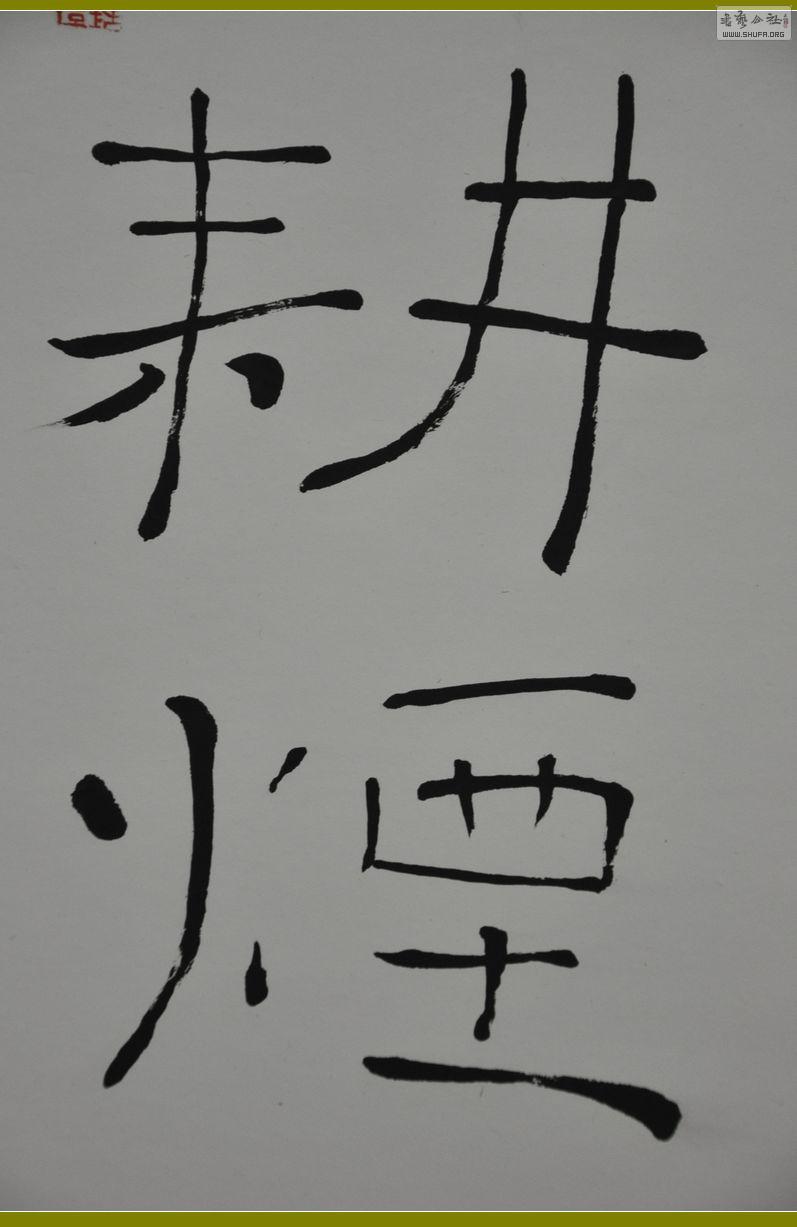 耕
煙
书艺公社
WWW.SHUFA.ORG